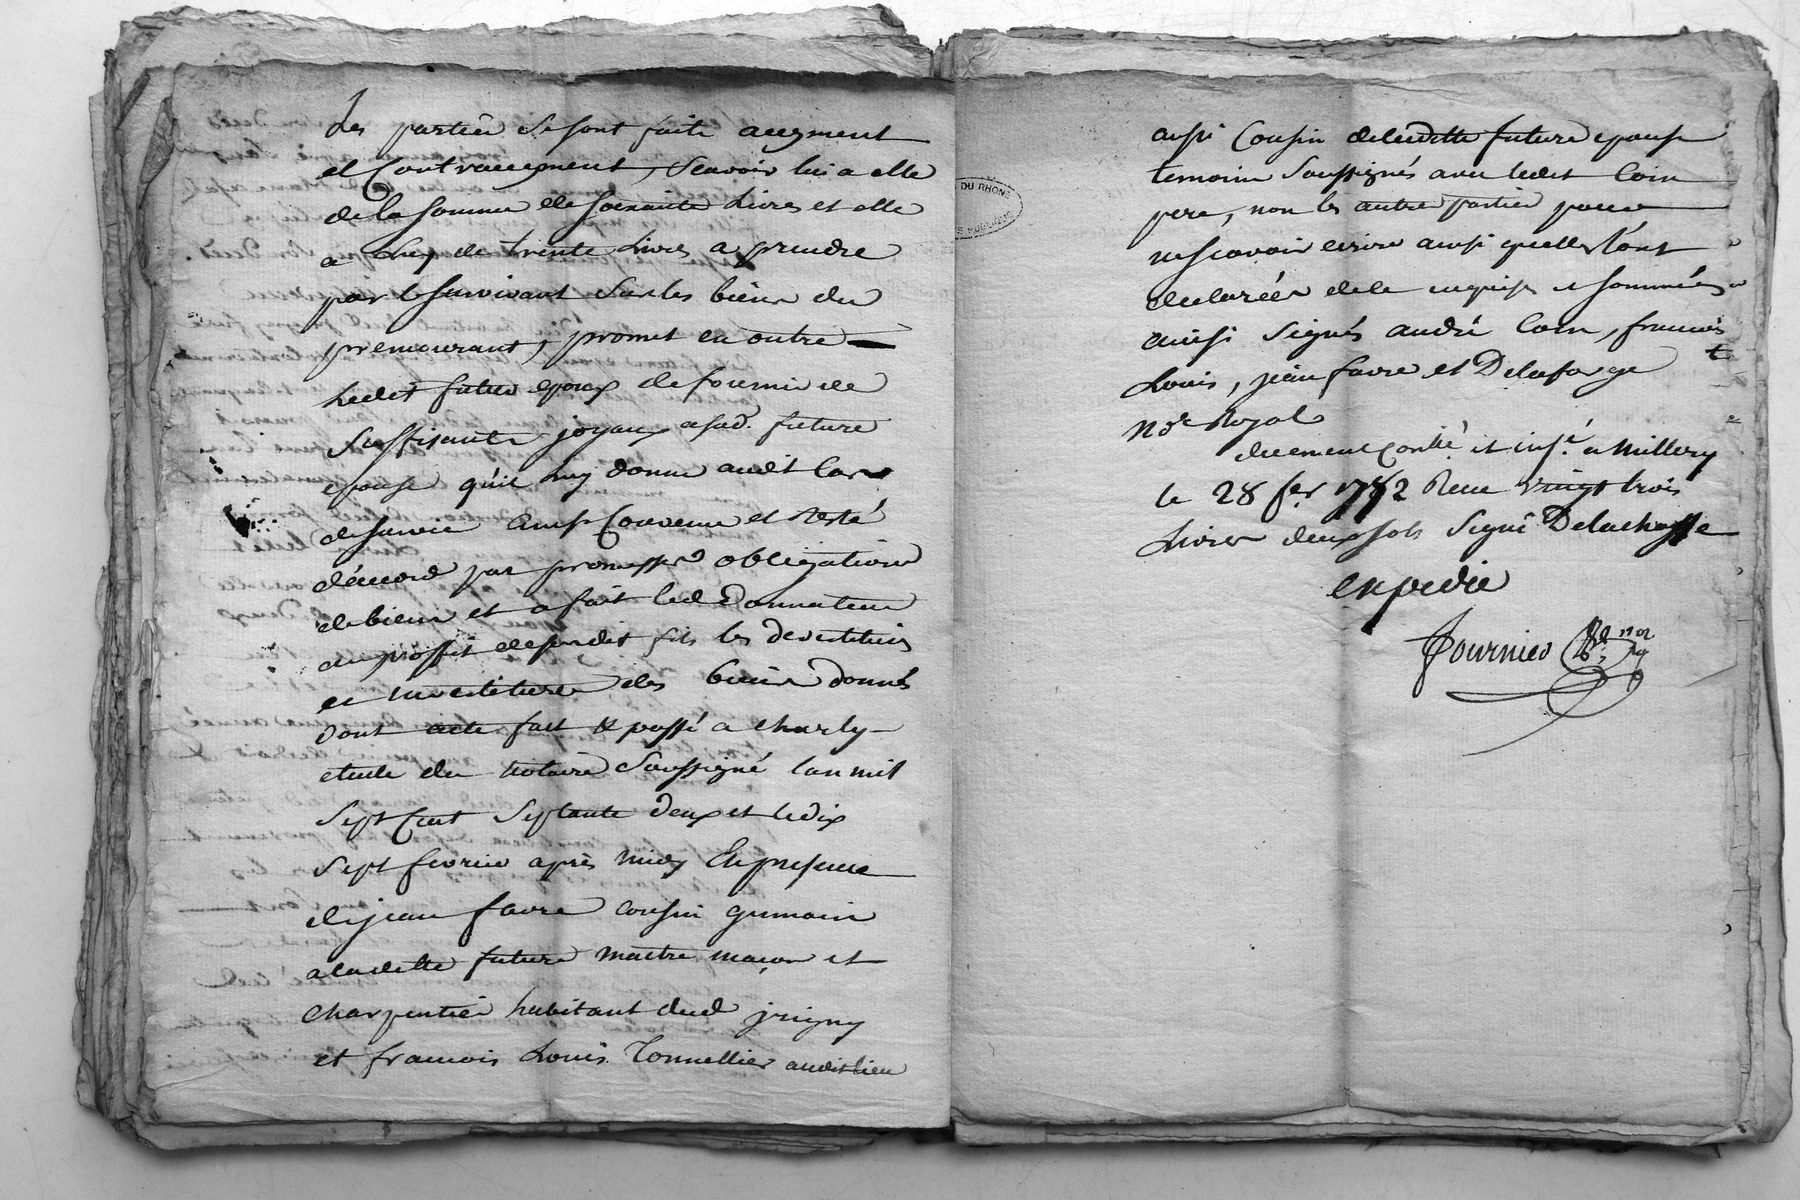 Les parties se sont faite augment
et Contreaugment, Scavoir lui a elle
de la Somme de Soixante Livres et elle
a Luy de trente Livres a prendre
par le Survivant Sur les biens du
premourant, promet en outre
Ledit futur epoux de fournir de
Suffisants joyaux a sad. future
epouse qu'il luy donne audit Cas
de Survie Ainsi Convenu et Resté
d'accord par promesses obligations
de biens et a fait led. Donnateur
au proffit de sondit fils les devestitures
et investitures des biens donnés
Dont acte fait & passé a Charly
etude du Notaire Soussigné l'an mil
Sept Cent Septante deux et le dix
Sept fevrier après midy En presence
de jean favre cousin germain
a ladette future maitre maçon et
charpentier habitant dud jrigny
et francois Louis Tonnellier audit lieu
aussi Cousin de ladette future epouse
temoins Soussignés avec ledit Coin
pere, non les autre parties pour
ne scavoir ecrire ainsi quelles l'ont
declarées de ce enquises et sommées
ainsi Signés andré Coin, francois
Louis, jean favre et Delaforge
Nore Royal
duement conllé et insé a Millery
le 28 fer 1772 Recu vingt trois
Livres deux sols Signé Delachasse
expedié
fournier
DU RHONE